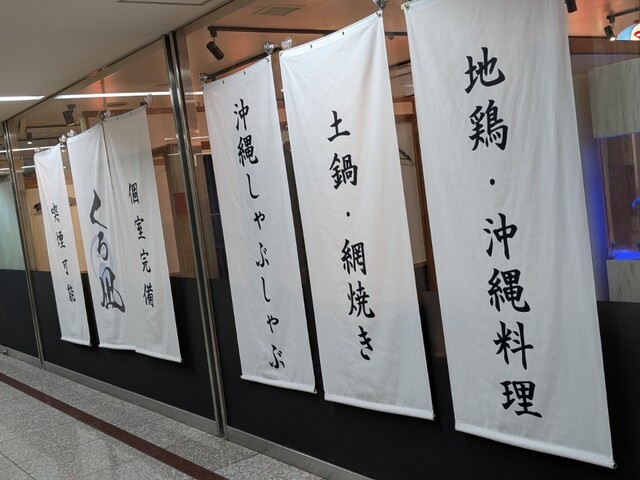 喫煙可能
くろ凪
個室完備
沖縄しゃぶしゃぶ
土鍋・網焼き
地鶏・沖縄料理